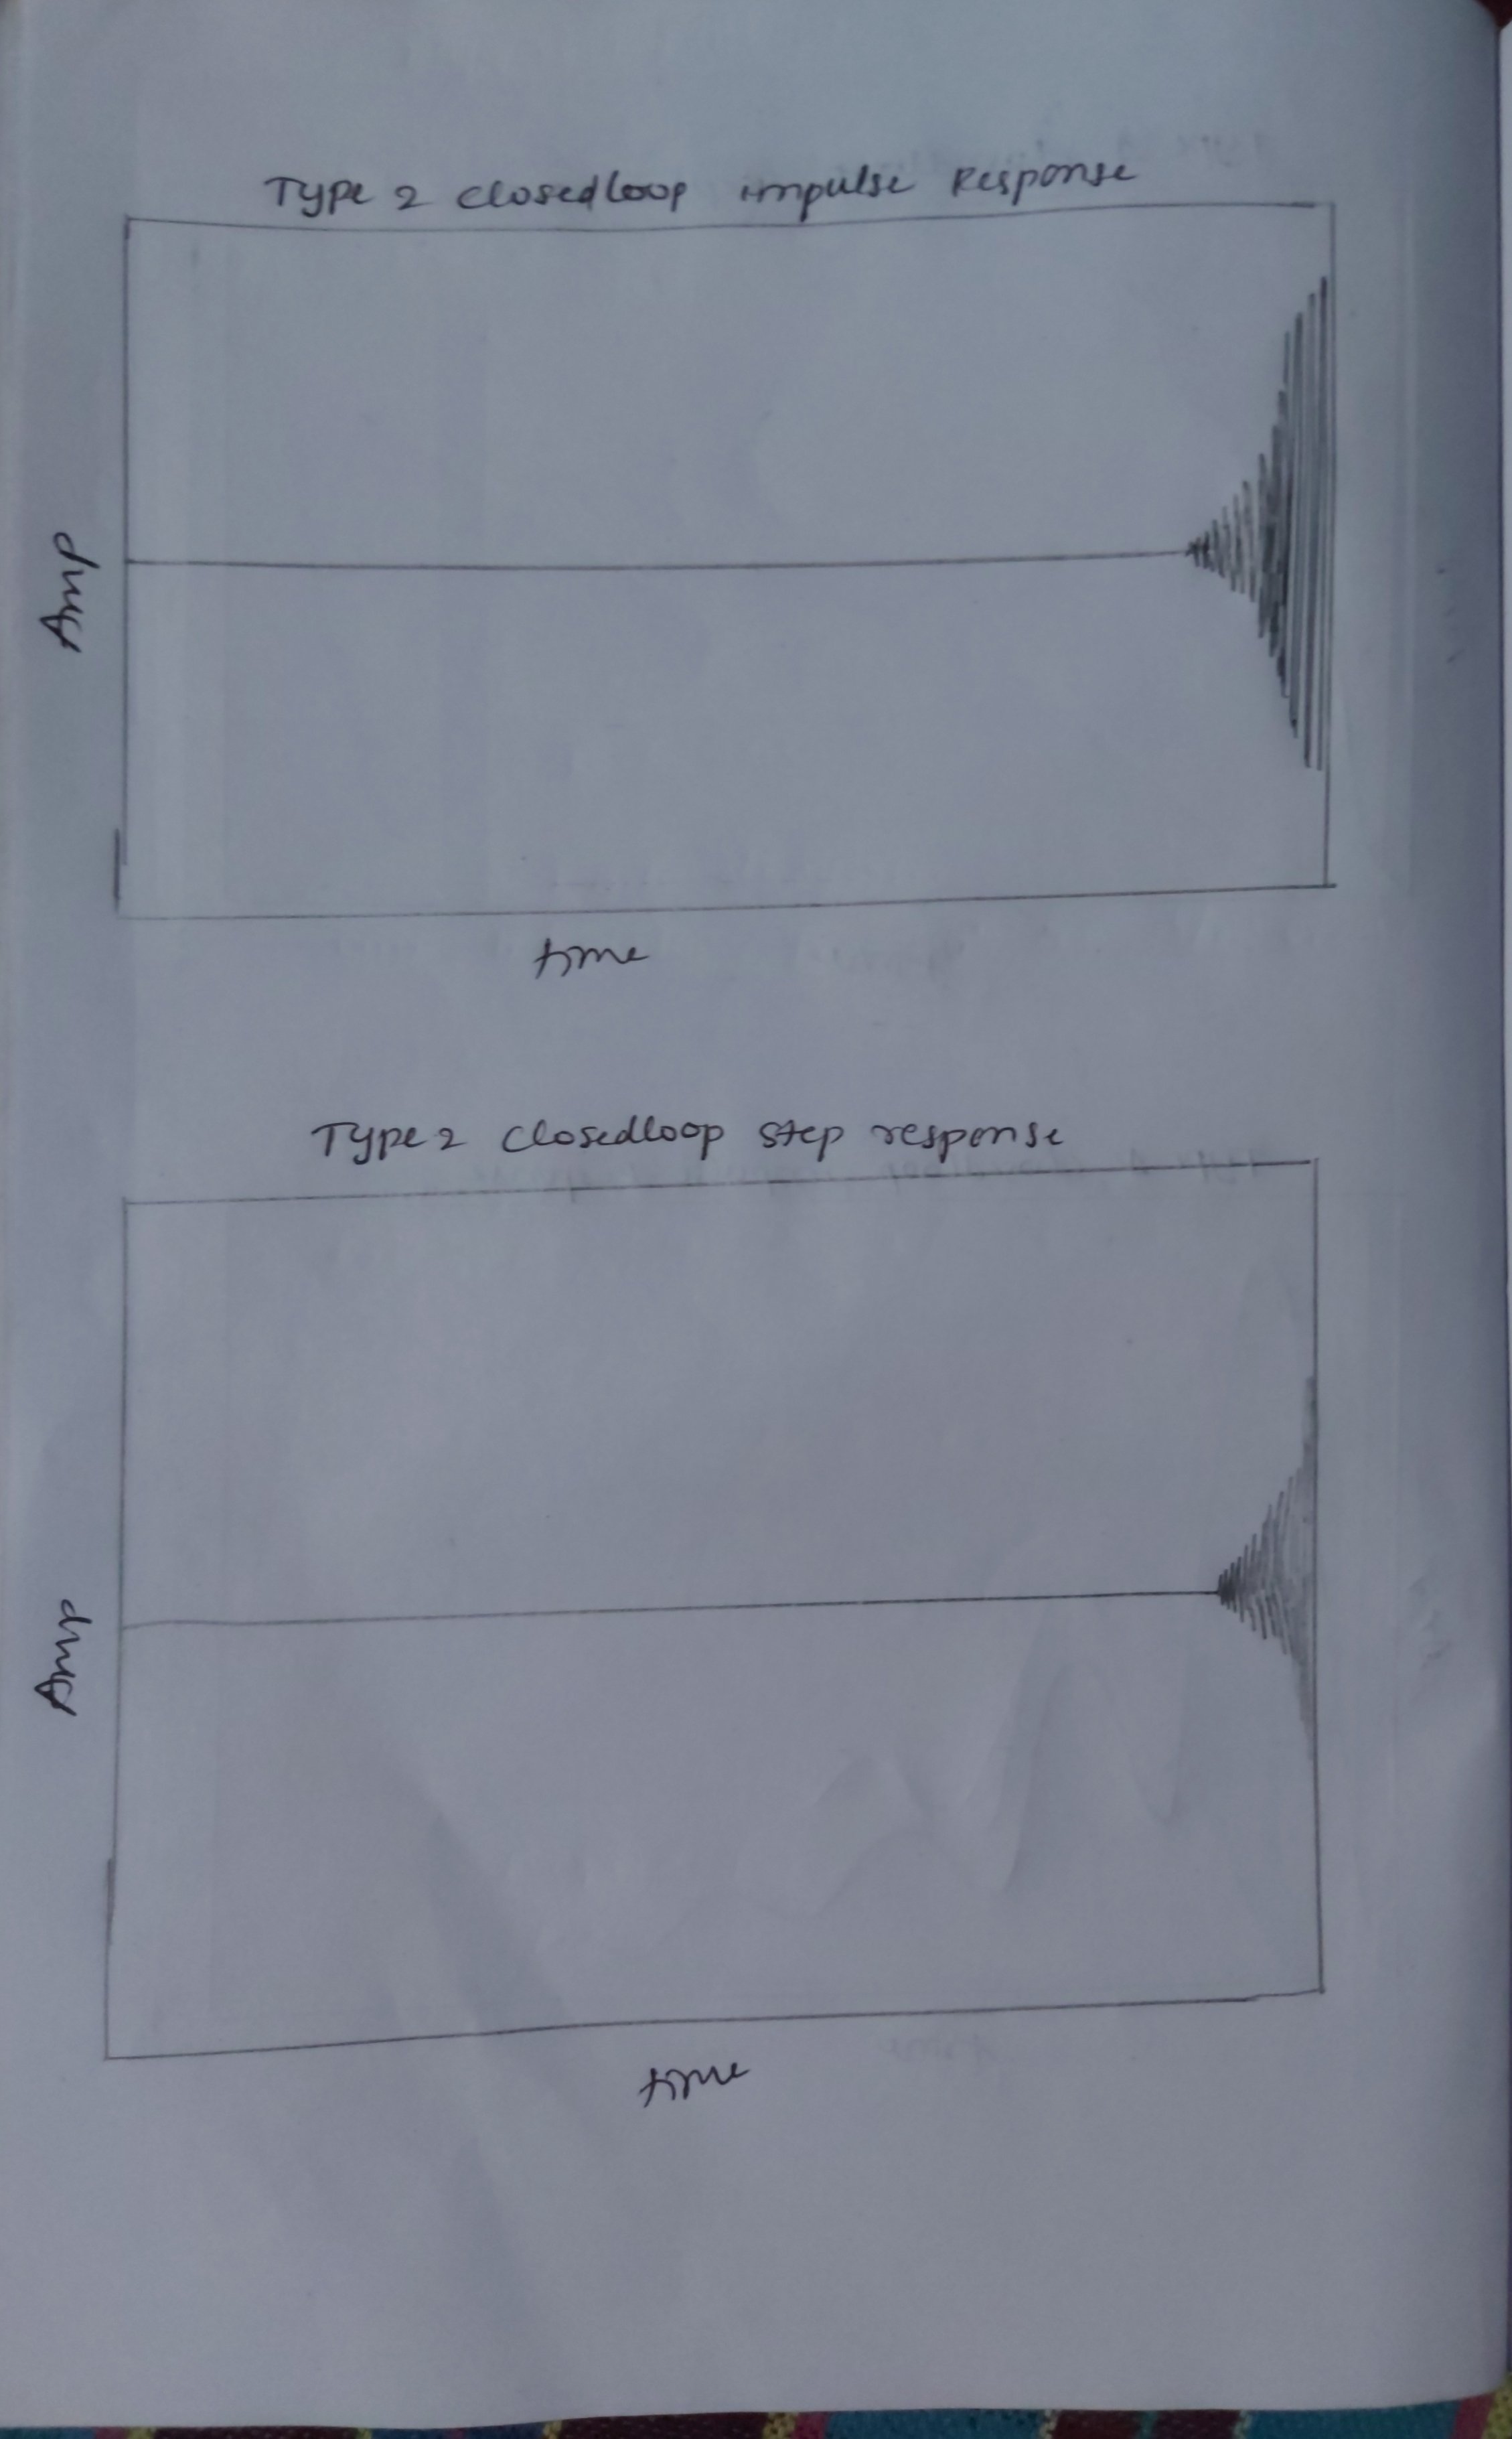 Type 2 closedloop impulse Response
Amp
time
Type 2 closedloop step response
Amp
time